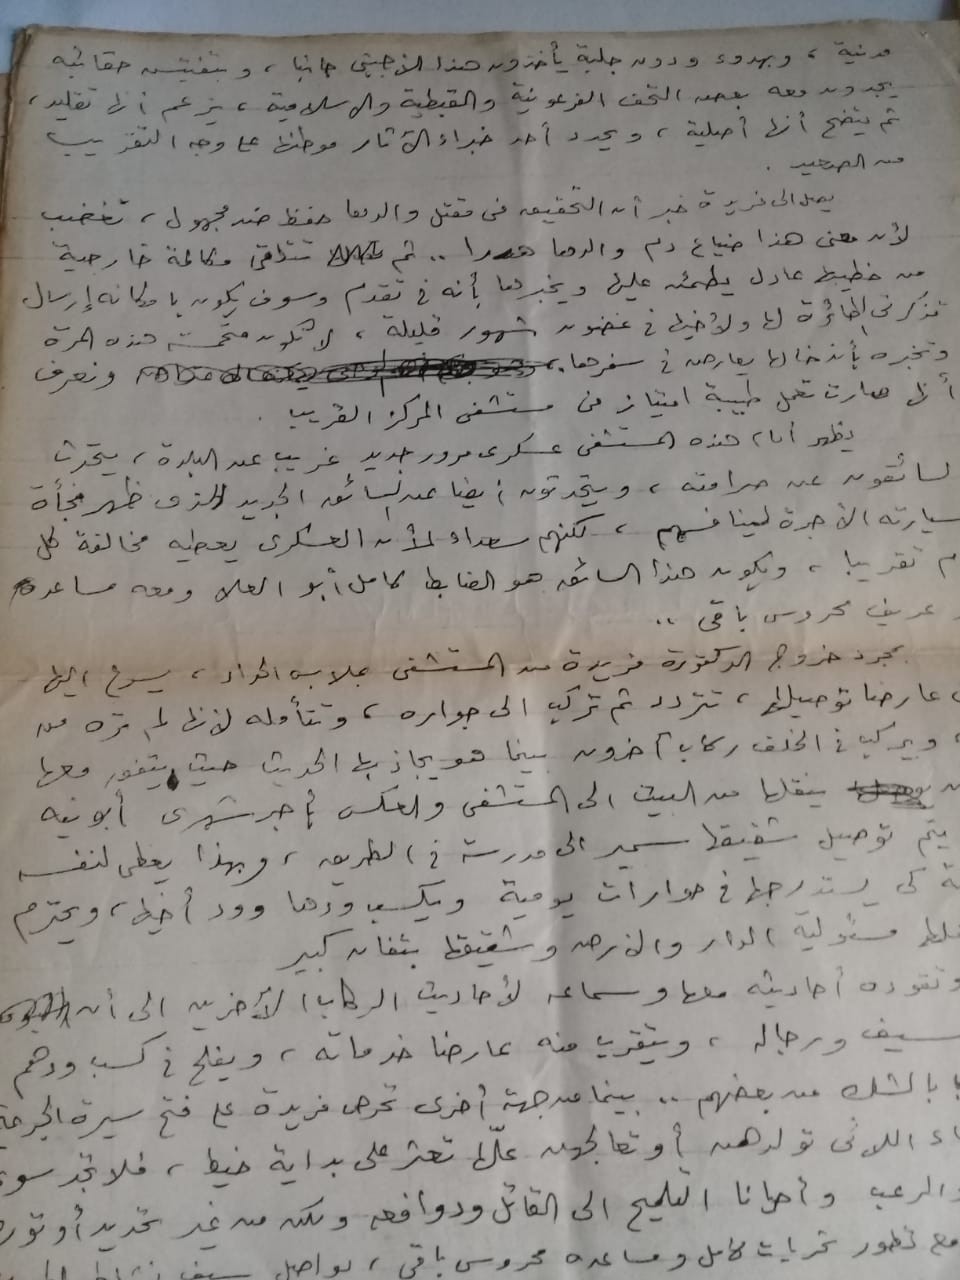 مدنية ، وبهدوء ودون جلبة يأخذون هذا الأجنبى جانبا ، وبتفتيش حقائبه
يجدون معه بعض التحف الفرعونية والقبطية والإسلامية ، يزعم أنها تقليد ،
ثم يتضح أنها أصلية ، ويحدد أحد خبراء الآثار موطنها على وجه التقريب
من الصعيد .
يصل الى فريدة خبر أن التحقيق فى مقتل والدها حفظ ضد مجهول ، تغضب
لأن معنى هذا ضياع دم والدها هدرا .. ثم تتلقى مكالمة خارجية
من خطيبها عادل يطمئن عليها ويخبرها بأنه فى تقدم وسوف يكون بامكانه إرسال
تذكرتى الطائرة لها ولأخيها فى غضون شهور قليلة ، لا تكون متحمسة هذه المرة
وتخبره بأن خالها يعارض فى سفرها ، ونعرف
أنها صارت تعمل طبيبة امتياز فى مستشفى المركز القريب .
يظهر أمام هذه المستشفى عسكرى مرور جديد غريب عن البلدة ، يتحدث
السائقون عن صرامته ، ويتحدثون أيضا عن السائق الجديد الذى ظهر فجأة
بسيارته الأجرة لينافسهم ، لكنهم سعداء لأن العسكرى يعطيه مخالفة كل
يوم تقريبا ، ويكون هذا السائق هو الضابط كامل أبو العلا ومعه مساعده
عريف محروس باقى ..
بمجرد خروج الدكتورة فريدة من المستشفى بملابس الحداد ، يسرع اليها
عارضا توصيلها ، تتردد ثم تركب الى جواره ، وتتأمله لأنها لم تره من
، ويركب فى الخلف ركاب آخرون بينما هو يجاذبها الحديث حيث يتفق معها
ينقلها من البيت الى المستشفى والعكس بأجر شهرى
يتم توصيل شقيقها سمير الى مدرسته فى الطريق ، وبهذا يعطى لنفسه
كى يستدرجها فى حوارات يومية ويكسب ودها وود أخيها ، ويحترم
مسئولية الدار والأرض وشقيقها بتفان كبير
وتقوده أحاديثه معها وسماعه لأحاديث الركاب الآخرين الى أن
سيف ورجاله ، ويتقرب منه عارضا خدماته ، ويفلح فى كسب ودهم
بالشك من بعضهم .. بينما من جهة أخرى تحرص فريدة على فتح سيرة الجريمة
اللائى تولدهن أو تعالجهن علّها تعثر على بداية خيط ، فلا تجد سوى
والرعب وأحيانا التلميح الى القاتل ودوافعه ولكن من غير تحديد أو
مع تطور تحريات كامل ومساعده محروس باقى ، يواصل سيف